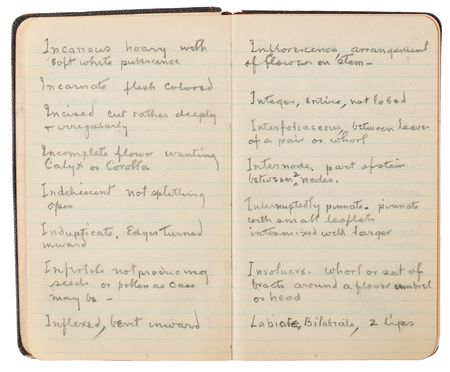 Incanous hoary with
soft white pubescence
Incarnate flesh colored
Incised cut rather deeply
+ irregularly
Incomplete flower wanting
Calyx or Corolla
Indehiscent not splitting
open
Induplicate, Edges turned
inward
Infertile not producing
seeds or pollen as case
may be –
Inflexed, bent inward
Inflorescence, arrangement
of flowers on stem –
Integer, entire, not lobed
Interfoliaceous, between leaves
of a pair or whorl
Internode, part of stem
between 2 nodes.
Interruptedly pinnate. pinnate
with small leaflets
intermixed with larger
Involucre. whorl or set of
bracts around a flower umbrel
or head
Labiate, Bilabiate, 2 lips